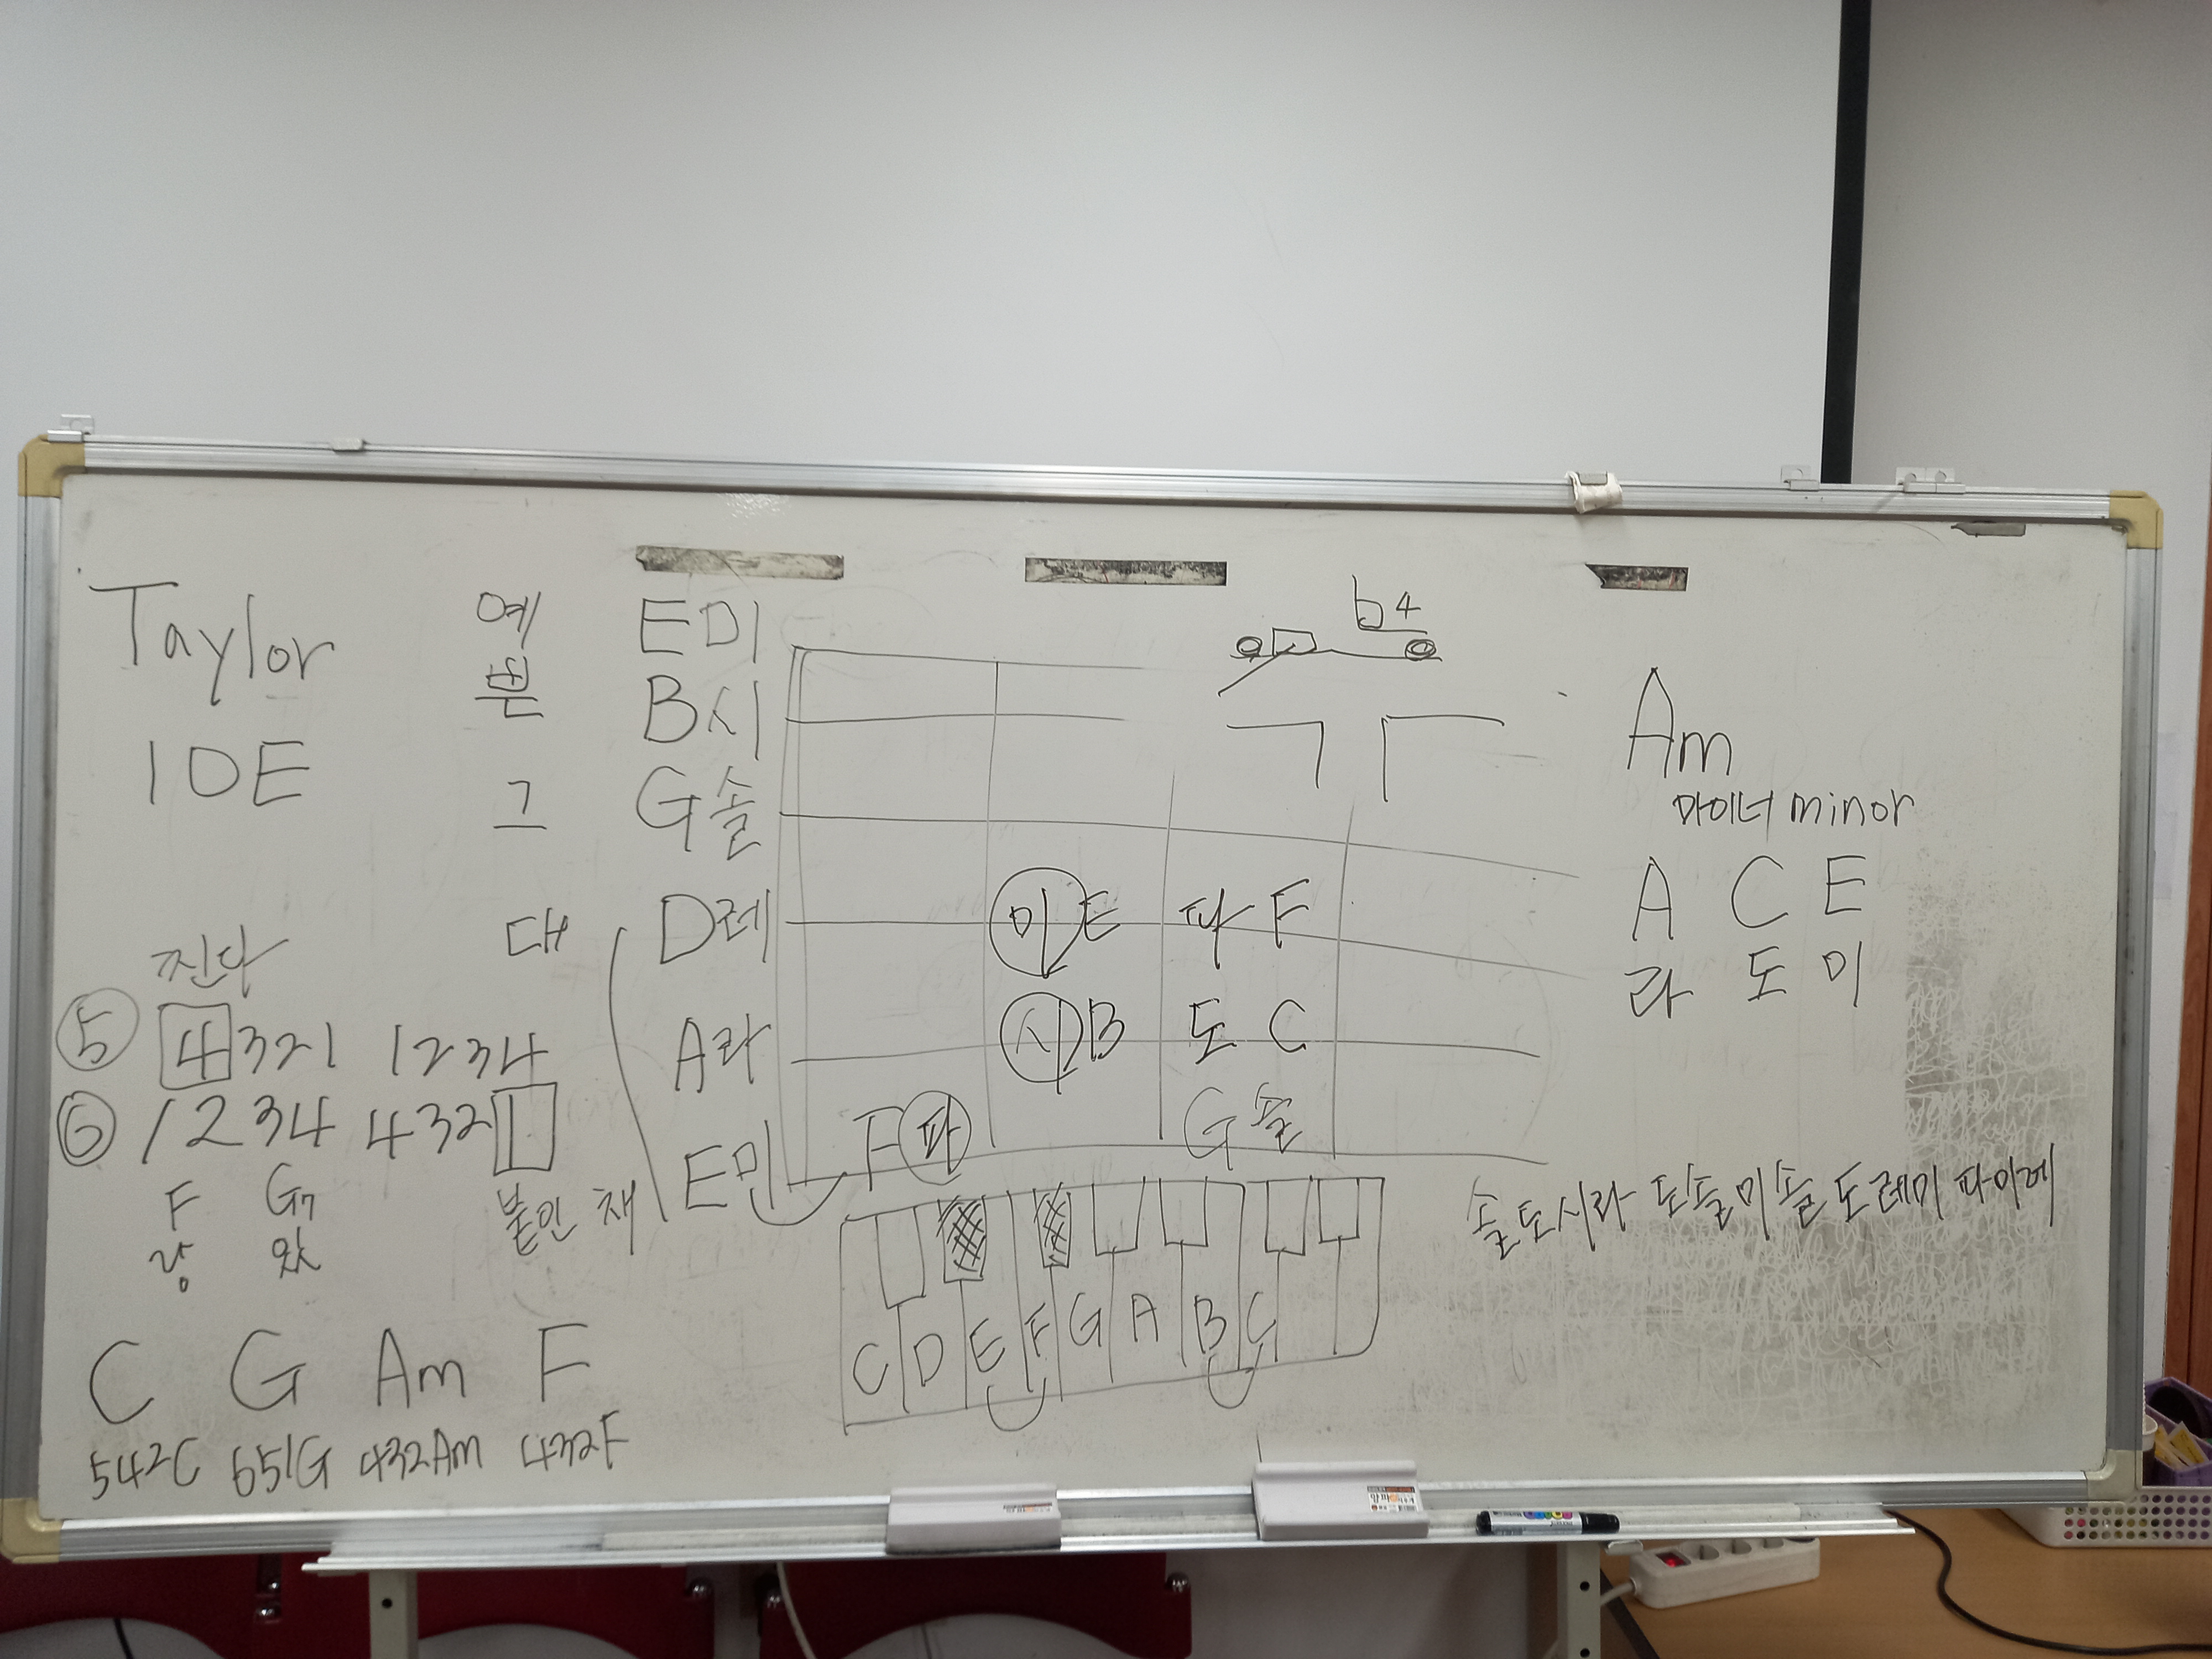 Taylor
10E
예 E미
쁜 B시
그 G솔
대 D레 미E 파 F
A라 시B 도 C
E미 F파 G솔
b4
Am
마이너 minor
A C E
라 도 미
찐다
⑤ 4321 1234
⑥ 1234 4321
F G7 붙인 채
랑 왔
C G Am F
542C 651G 432Am 432F
C D E F G A B C
솔도시라 도솔미솔 도레미 파미레